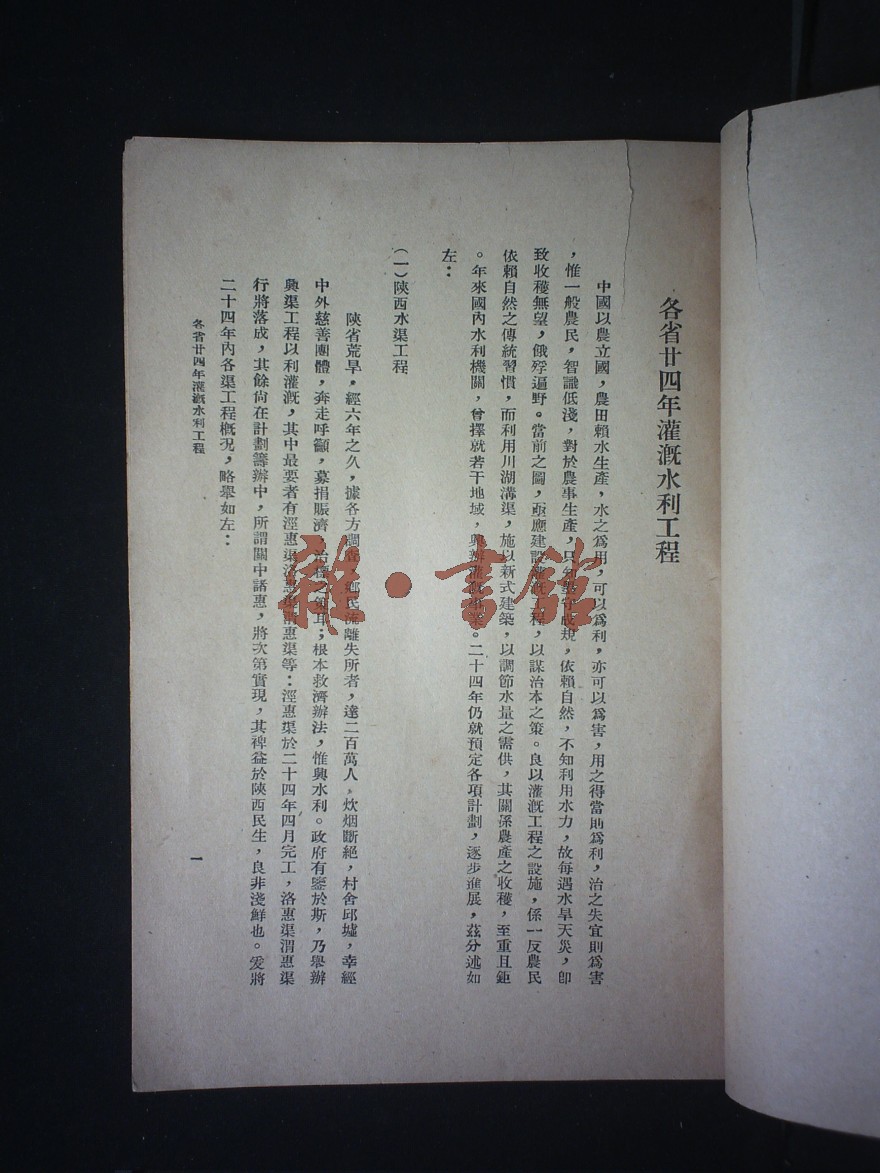 各省廿四年灌漑水利工程
中國以農立國，農田賴水生產，水之爲用，可以爲利，亦可以爲害，用之得當則爲利，治之失宜則爲害
，惟一般農民，智識低淺，對於農事生產，只知墨守成規，依賴自然，不知利用水力，故每遇水旱天災，卽
致收穫無望，餓殍遍野。當前之圖，亟應建設灌漑工程，以謀治本之策。良以灌漑工程之設施，係一反農民
依賴自然之傳統習慣，而利用川湖溝渠，施以新式建築，以調節水量之需供，其關係農產之收穫，至重且鉅
。年來國內水利機關，曾擇就若干地域，興辦灌漑。二十四年仍就預定各項計劃，逐步進展，茲分述如
左：
（一）陝西水渠工程
陝省荒旱，經六年之久，據各方調查，鄉民流離失所者，達二百萬人，炊烟斷絕，村舍邱墟，幸經
中外慈善團體，奔走呼籲，募捐賑濟，治標之耳；根本救濟辦法，惟興水利。政府有鑒於斯，乃舉辦
興渠工程以利灌漑，其中最要者有涇惠渠洛惠渠渭惠渠等：涇惠渠於二十四年四月完工，洛惠渠渭惠渠
行將落成，其餘尙在計劃籌辦中，所謂關中諸惠，將次第實現，其裨益於陝西民生，良非淺鮮也。爰將
二十四年內各渠工程概況，略舉如左：
各省廿四年灌漑水利工程
一
龍·書館